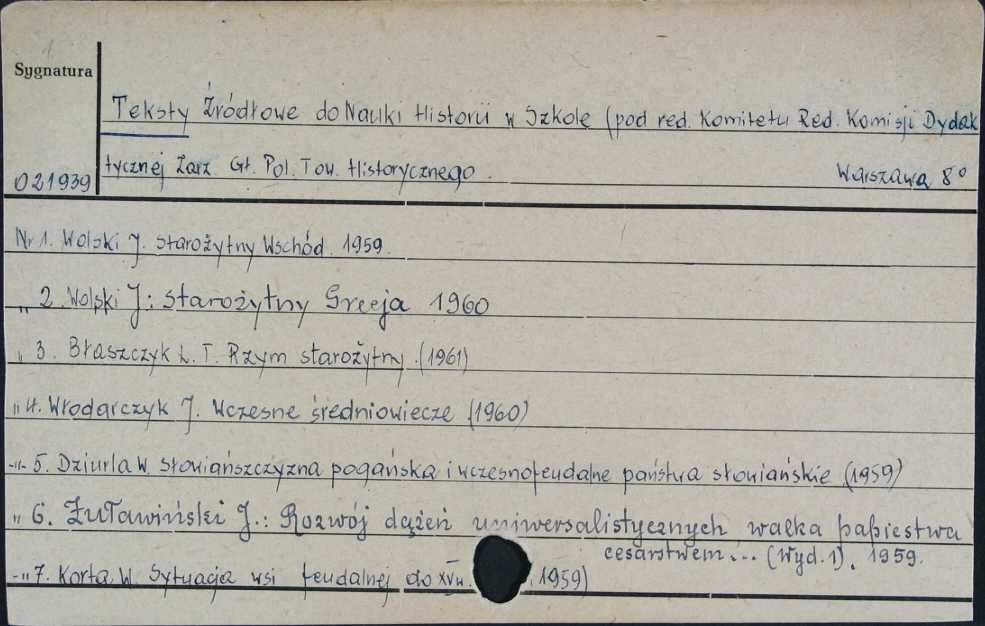 1
Sygnatura
Teksty Źródłowe do Nauki Historii w Szkole (pod red. Komitetu Red. Komisji Dydak
tycznej Zarz. Gł. Pol. Tow. Historycznego. Warszawa 8°
021939
Nr 1. Wolski J. Starożytny Wschód. 1959.
„ 2. Wolski J: Starożytny Grecja 1960
„ 3. Błaszczyk L. T. Rzym starożytny. (1961)
„ 4. Włodarczyk J. Wczesne średniowiecze (1960)
-„- 5. Dziurla W. Słowiańszczyzna pogańska i wczesnofeudalne państwa słowiańskie (1959)
„ 6. Żuławiński J.: Rozwój dążeń uniwersalistycznych walka papiestwa
cesarstwem... (Wyd. 1). 1959.
-„ 7. Korta W. Sytuacja wsi feudalnej do XV w. 1959)